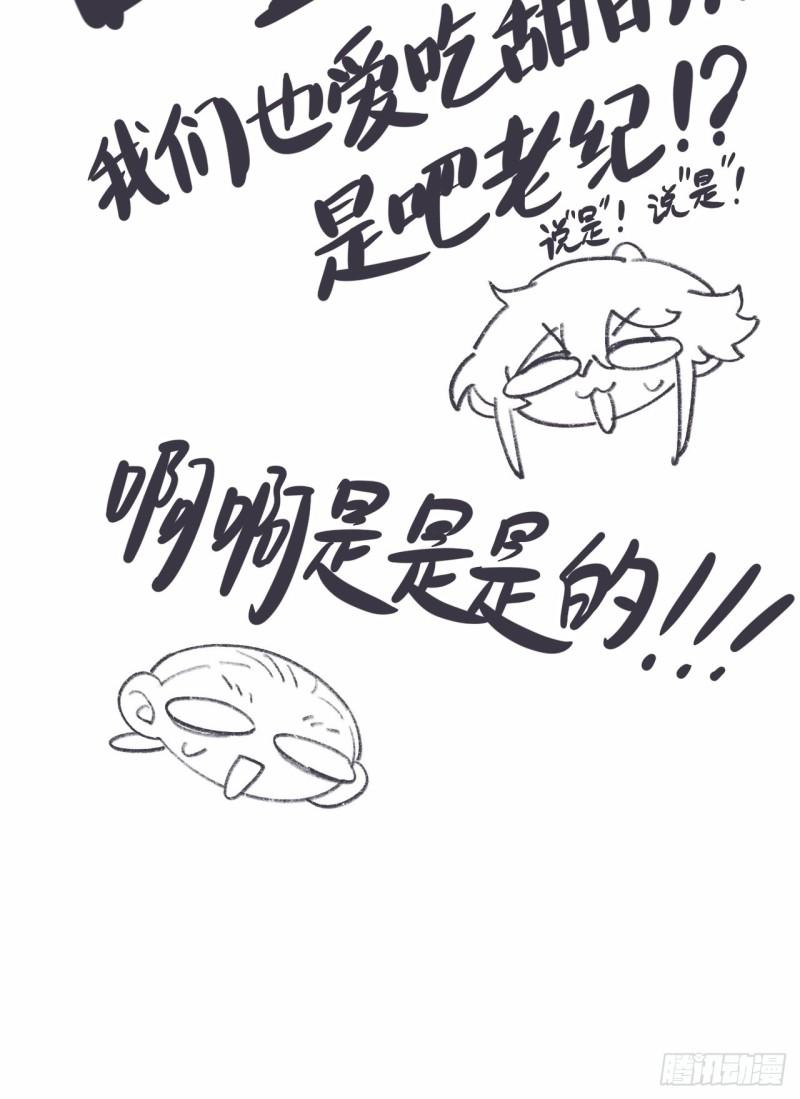 我们也爱吃甜
是吧老纪!?
说"是"! 说"是"!
啊啊是是是的!!!
腾讯动漫